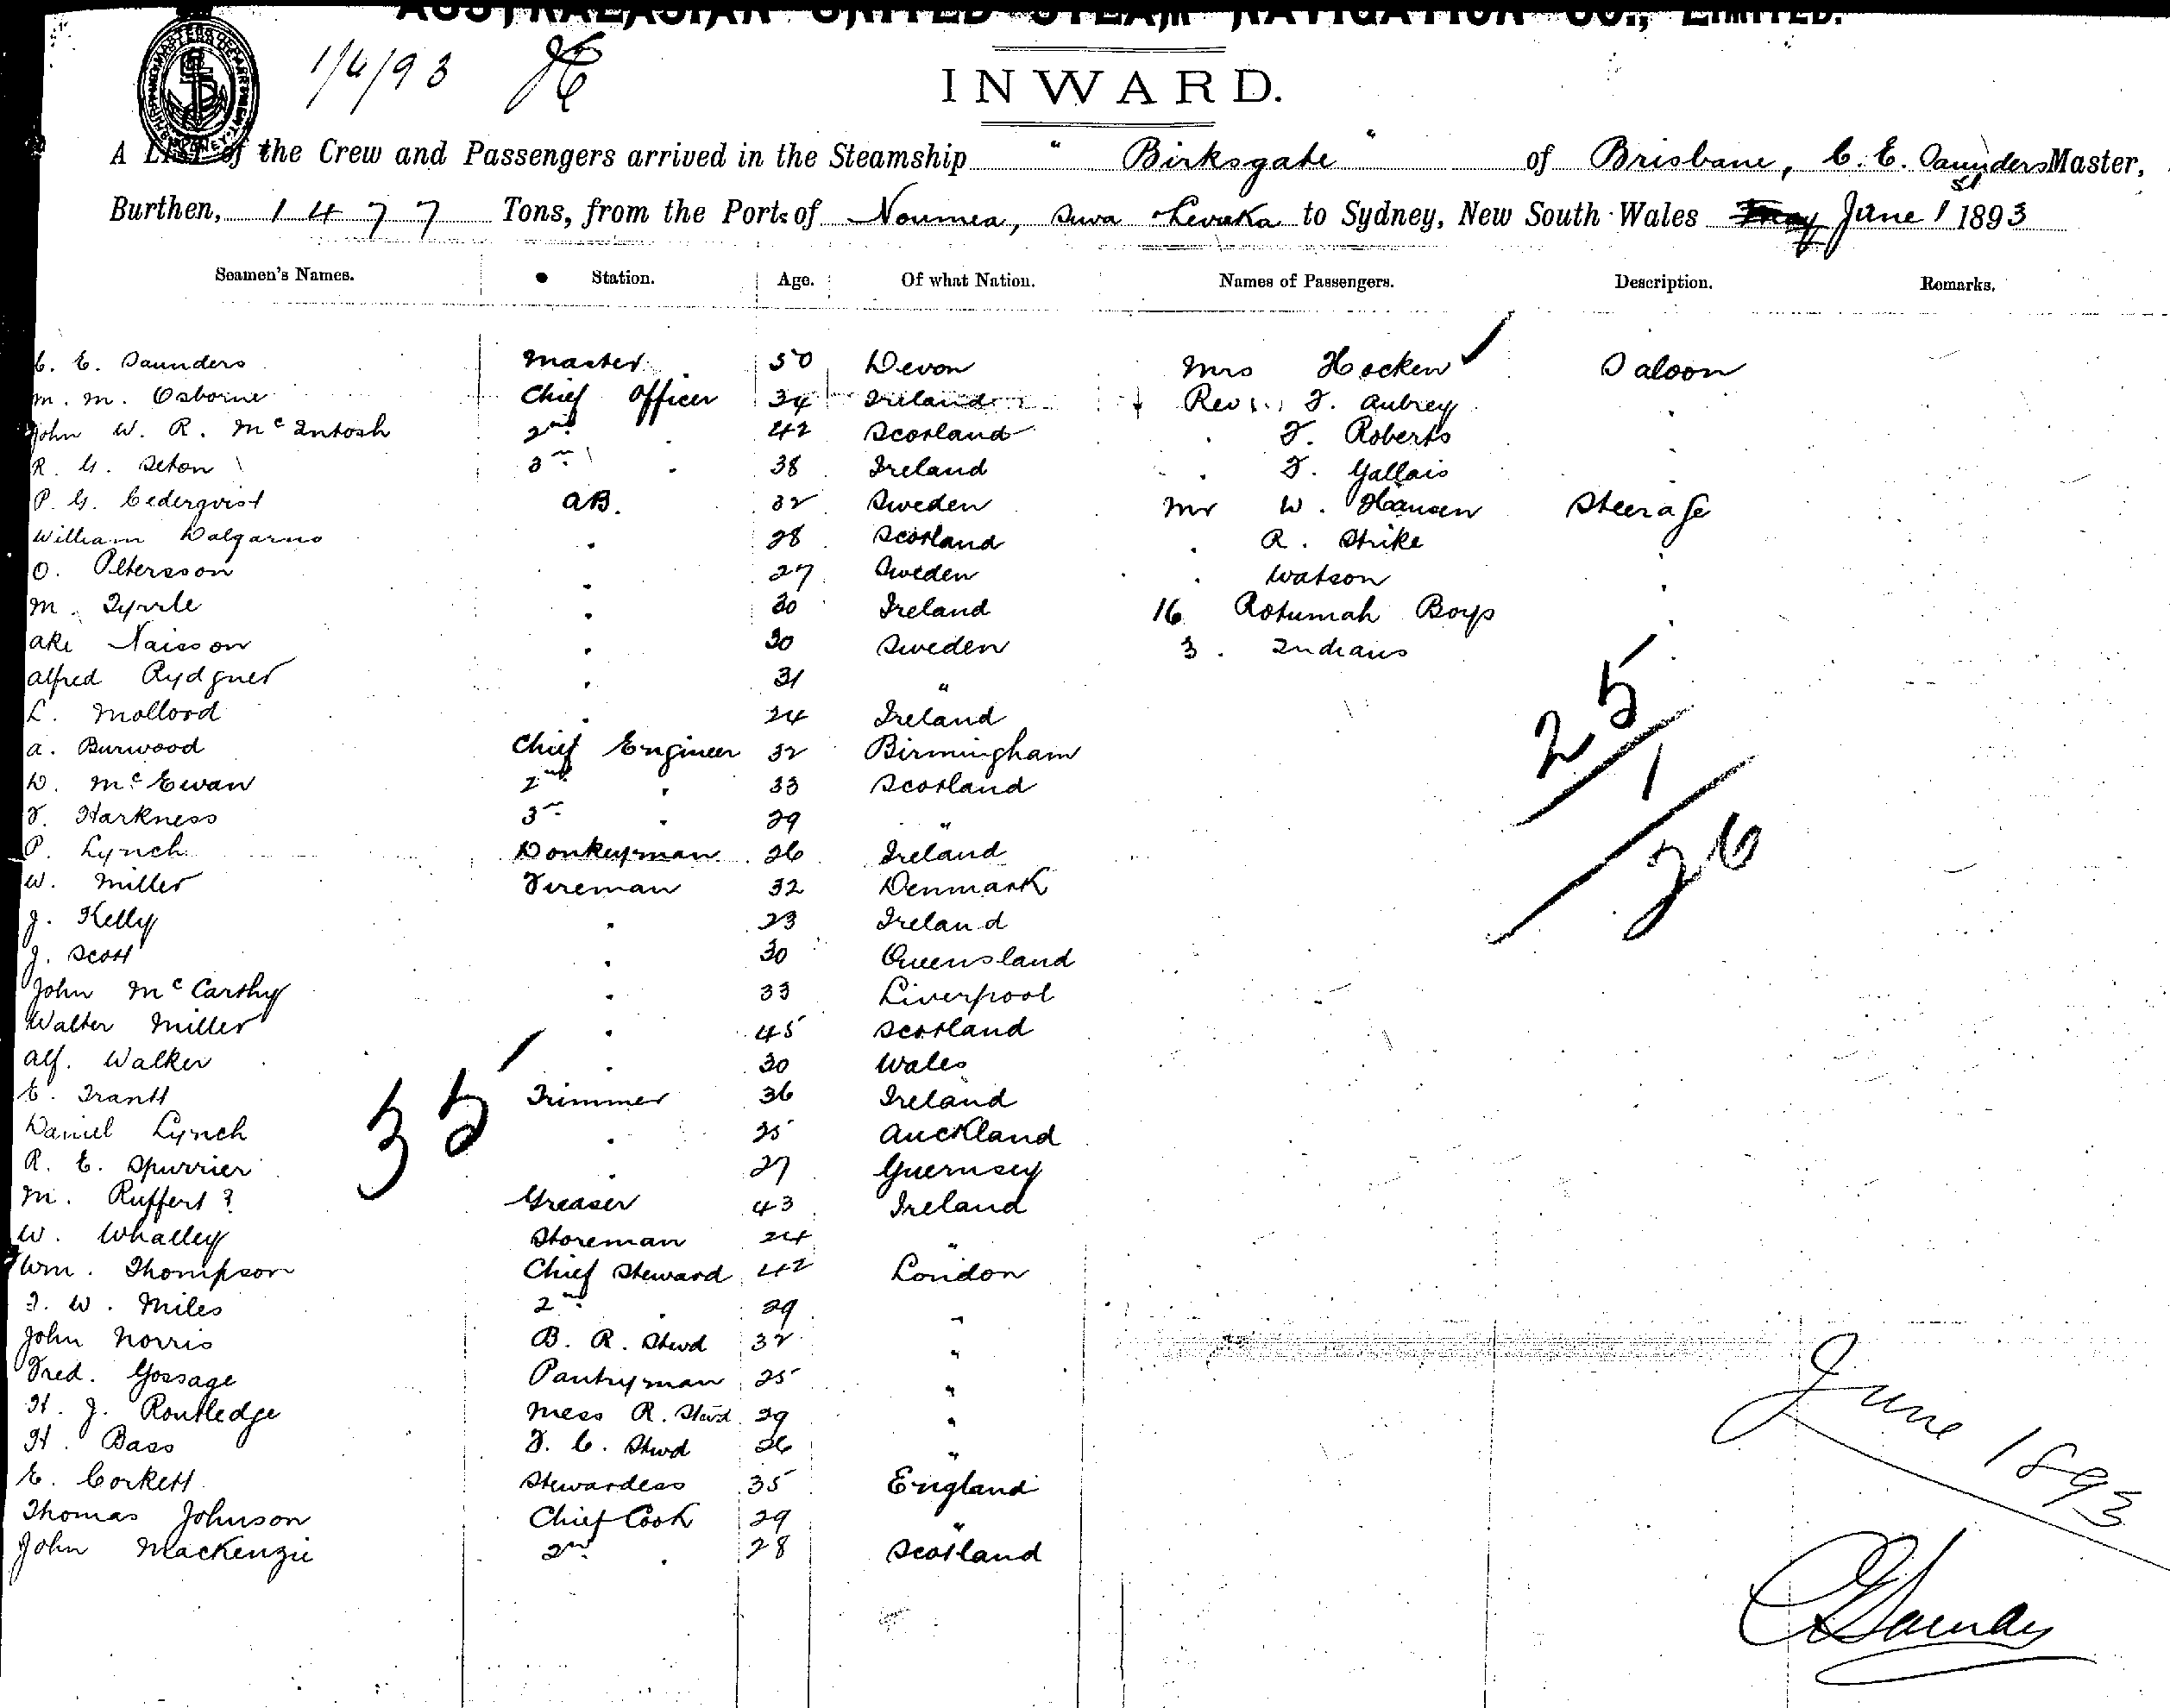 AUSTRALASIAN UNITED STEAM NAVIGATION CO., LIMITED.
1/6/93
INWARD.
A List of the Crew and Passengers arrived in the Steamship "Birksgate" of Brisbane, C. E. Saunders Master,
Burthen, 1477 Tons, from the Ports of Noumea, Suva & Levuka to Sydney, New South Wales June 1st 1893
Seamen's Names. Station. Age. Of what Nation. Names of Passengers. Description. Remarks.
C. E. Saunders Master 50 Devon Mrs Hocken Saloon
M. M. Osborne Chief Officer 34 Ireland Revs. F. Aubrey
John W. R. McIntosh 2nd . 42 Scotland . F. Roberts .
R. G. Seton 3rd . 38 Ireland . F. Gallais .
P. G. Cederqvist AB. 32 Sweden Mr W. Hansen Steerage
William Dalgarno . 28 Scotland . R. Strike .
O. Pettersson . 27 Sweden . Watson .
M. Tyrrle . 30 Ireland 16 Rotumah Boys .
Ake Naisson . 30 Sweden 3 . Indians .
Alfred Rydgner . 31 "
L. Mollord . 24 Ireland
A. Burwood Chief Engineer 32 Birmingham
D. McEwan 2nd . 33 Scotland
F. Harkness 3rd . 29 "
P. Lynch Donkeyman 26 Ireland
W. Miller Fireman 32 Denmark
J. Kelly . 23 Ireland
J. Scott . 30 Queensland
John McCarthy . 33 Liverpool
Walter Miller . 45 Scotland
Alf. Walker . 30 Wales
E. Trantt Trimmer 36 Ireland
Daniel Lynch . 25 Auckland
R. E. Spurrier . 27 Guernsey
M. Ruffert ? Greaser 43 Ireland
W. Whalley Storeman 24 "
Wm. Thompson Chief Steward 42 London
F. W. Miles 2nd . 29 "
John Norris B. R. Stwd 32 "
Fred. Gossage Pantryman 25 "
H. J. Routledge Mess R. Stwd 29 "
H. Bass F. C. Stwd 26 "
E. Corkett Stewardess 35 England
Thomas Johnson Chief Cook 29 "
John Mackenzie 2nd . 28 Scotland
25
1
26
35
June 1893
CESaunders